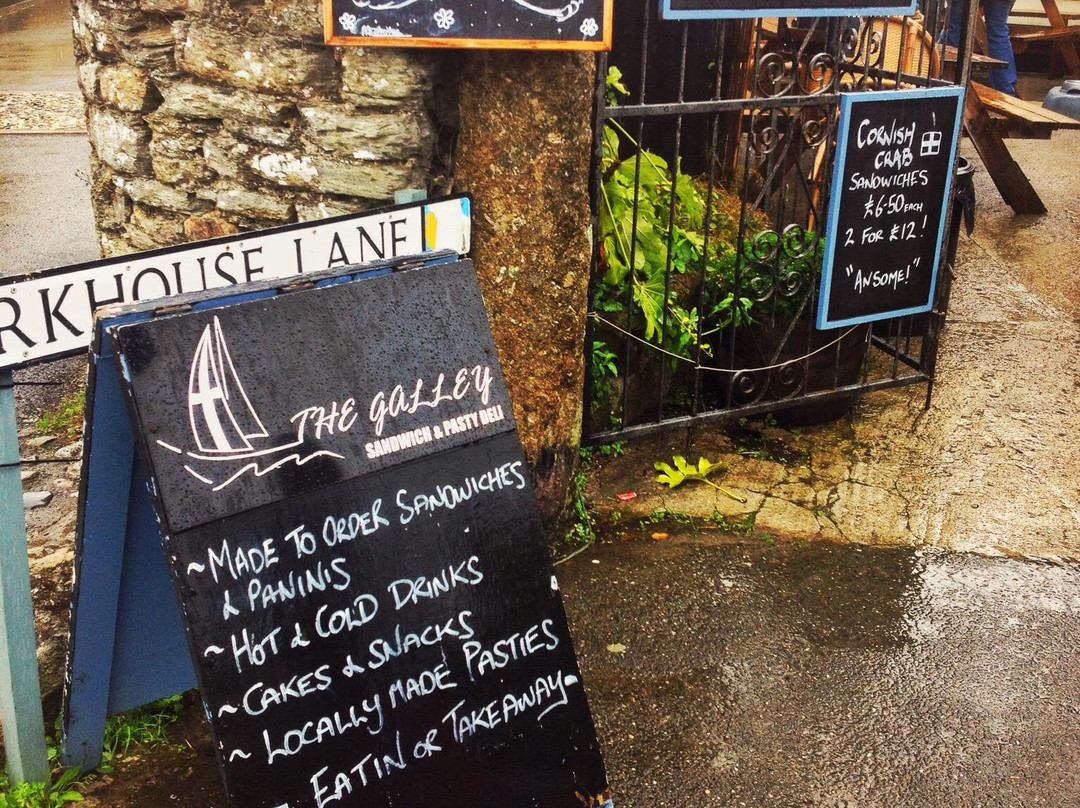 RKHOUSE LANE
THE GALLEY
SANDWICH & PASTY DELI
~MADE TO ORDER SANDWICHES
& PANINIS
~HOT & COLD DRINKS
~CAKES & SNACKS
~LOCALLY MADE PASTIES
EATIN OR TAKEAWAY
CORNISH
CRAB
SANDWICHES
£6-50 EACH
2 FOR £12!
"ANSOME!"